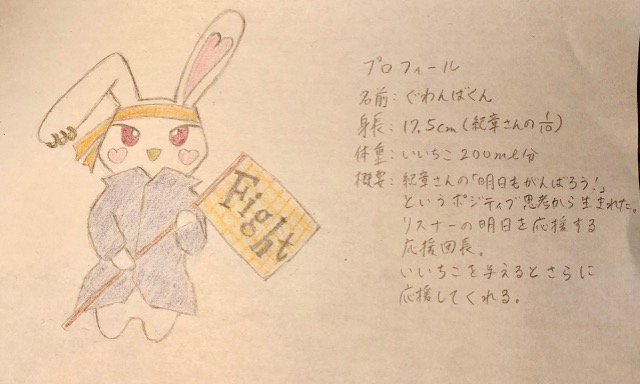 Fight
プロフィール
名前：ぐわんばくん
身長：17.5cm(紀章さんの1/10)
体重：いいちこ200ml分
概要：紀章さんの「明日もがんばろう!」
というポジティブ思考から生まれた。
リスナーの明日を応援する
応援団長。
いいちこを与えるとさらに
応援してくれる。